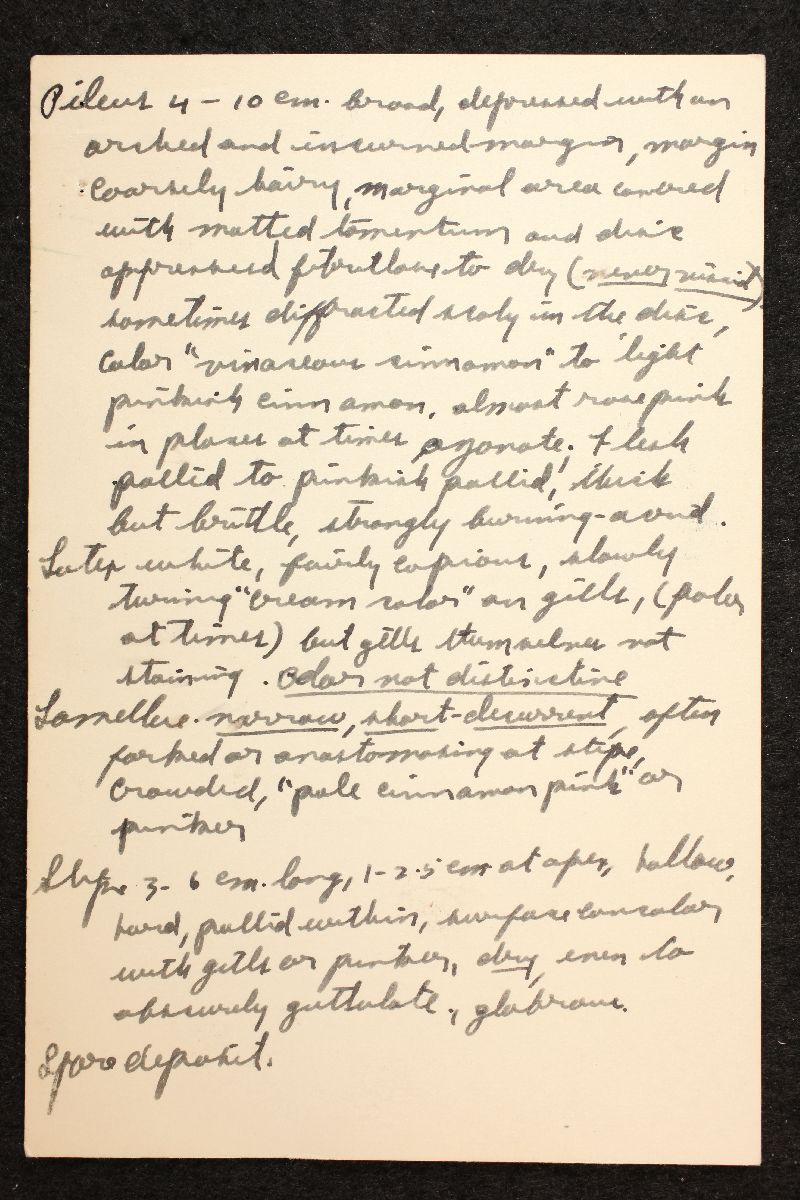 Pileus 4 - 10 cm. broad, depressed with an
arched and incurved margin, margin
coarsely hairy, marginal area covered
with matted tomentum and disc
appressed fibrillose to dry (never viscid)
sometimes diffracted scaly in the disc,
color "vinaceous cinnamon" to light
pinkish cinnamon, almost rose pink
in places at times, azonate; Flesh
pallid to pinkish pallid, thick
but brittle, strongly burning-acrid.
Latex white, fairly copious, slowly
turning "cream color" on gills, (paler
at times) but gills themselves not
staining. Odor not distinctive
Lamellae narrow, short-decurrent, often
forked or anastomosing at stipe,
crowded, "pale cinnamon pink" or
pinker
Stipe 3 - 6 cm. long, 1-2.5 cm at apex, hollow,
hard, pallid within, surface concolor
with gills or pinker, dry, even to
obscurely guttulate, glabrous.
Spore deposit.